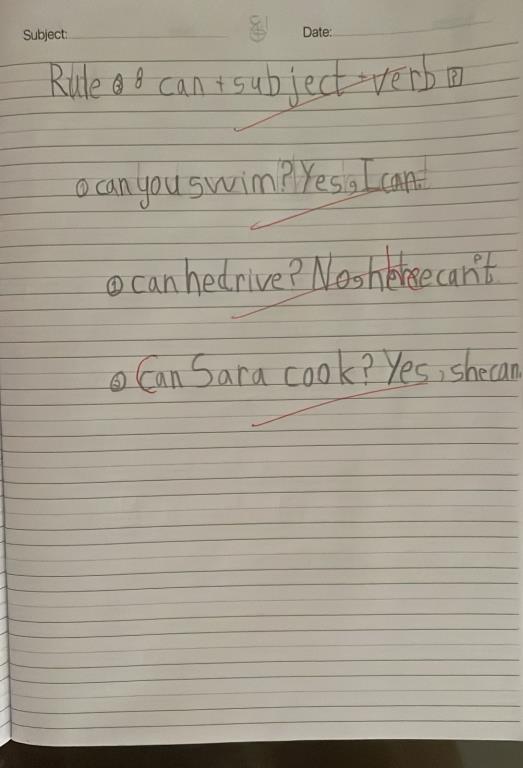 Subject: Date:
Rule: can + subject + verb ?
can you swim? Yes, I can.
can he drive? No, he can't
Can Sara cook? Yes, she can.